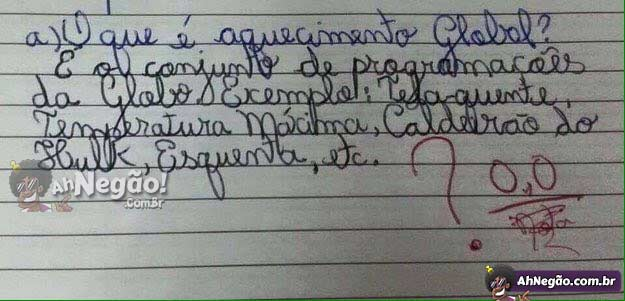 a) O que é aquecimento Global?
É o conjunto de programações
da Globo. Exemplo: Tela-quente,
Temperatura Máxima, Caldeirão do
Hulk, Esquenta, etc.
? 0,0
AhNegão!
.com.Br
AhNegão.com.br